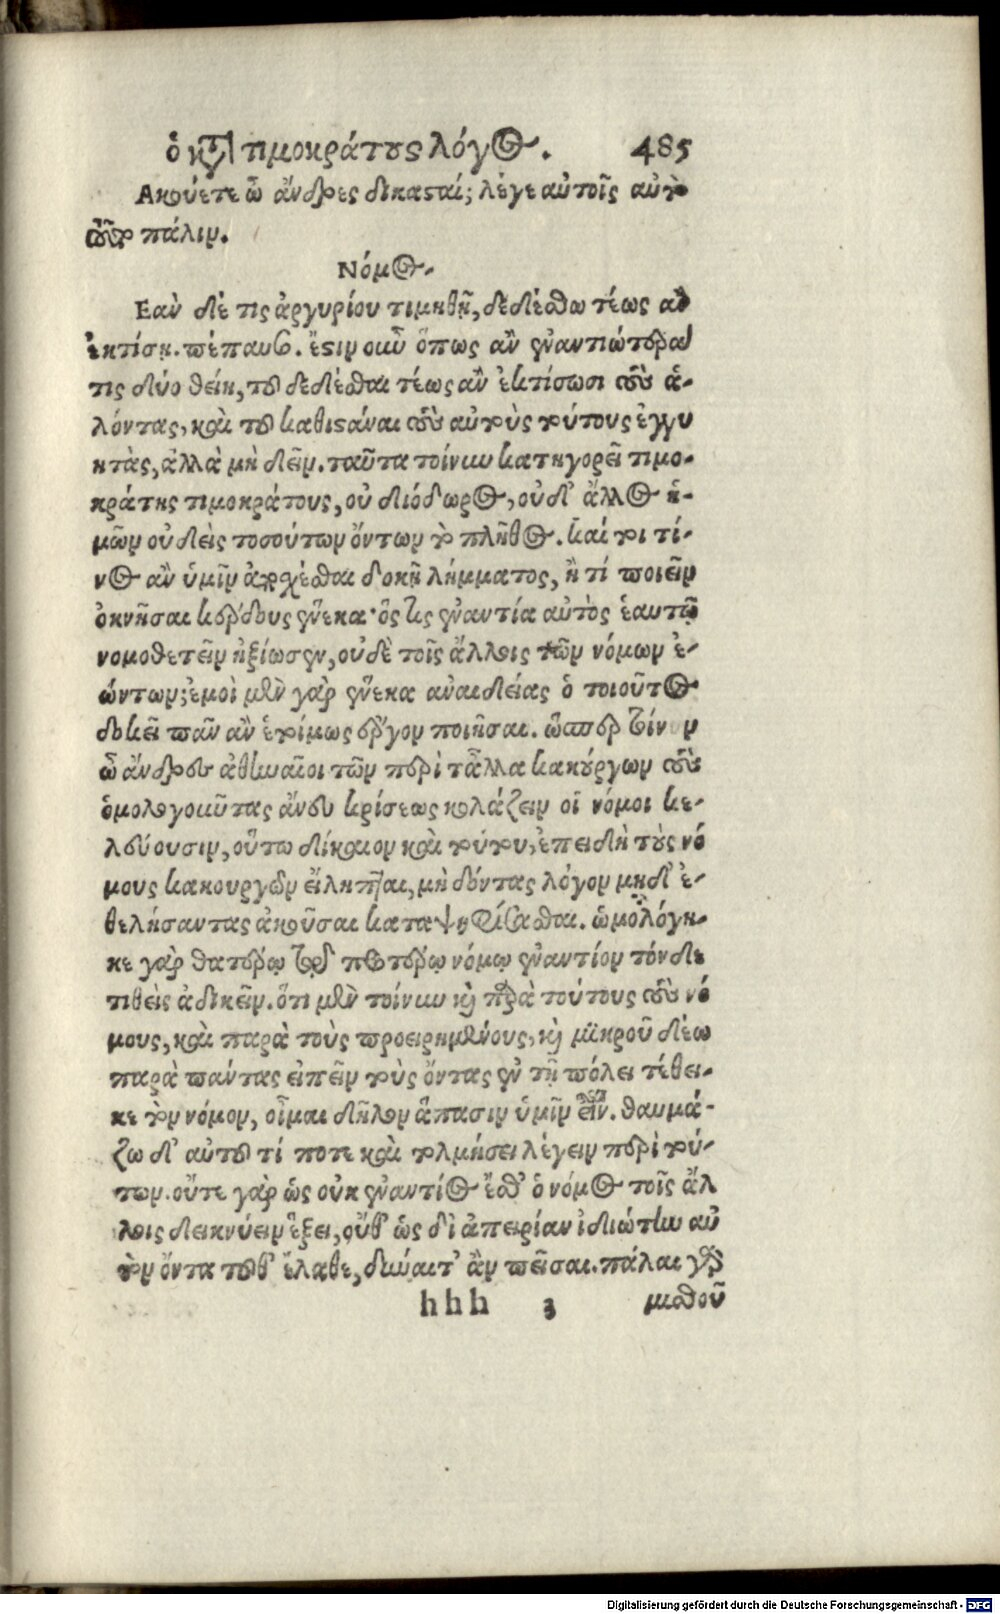 ὁ κατὰ τιμοκράτους λόγος. 485
Ακούετε ὦ ἄνδρες δικασταί; λέγε αὐτοῖς αὐτὸν
πάλιν.
Νόμος.
Εαν δέ τις ἀργυρίου τιμηθῇ, δεδέσθω τέως ἂν
ἐκτίσῃ. πέπαυσο. ἔστιν οὖν ὅπως ἂν ἐναντιώτερα
τις δύο θείη, τοῦ δεδέσθαι τέως ἂν ἐκτίσωσι τοὺς ἁ-
λόντας, καὶ τοῦ καθιστάναι τοὺς αὐτοὺς τούτους ἐγγυ
ητὰς, ἀλλὰ μὴ δεῖν. ταῦτα τοίνυν κατηγορεῖ τιμο-
κράτης τιμοκράτους, οὐ διόδωρος, οὐδ' ἄλλος ἡ-
μῶν οὐδεὶς τοσούτων ὄντων τὸ πλῆθος. καί τοι τί-
νος ἂν ὑμῖν ἀποσχέσθαι δοκῇ λήμματος, ἢ τί ποιεῖν
ὀκνῆσαι κέρδους ἕνεκα· ὅς τις ἐναντία αὐτὸς ἑαυτῷ
νομοθετεῖν ἠξίωσεν, οὐδὲ τοῖς ἄλλοις τῶν νόμων ἐ-
ώντων; ἐμοὶ μὲν γὰρ ἕνεκα ἀναιδείας ὁ τοιοῦτος
δοκεῖ πᾶν ἂν ἑτοίμως ἔργον ποιῆσαι. ὥσπερ τοίνυν
ὦ ἄνδρες ἀθηναῖοι τῶν περὶ τἆλλα κακούργων τοὺς
ὁμολογοῦντας ἄνευ κρίσεως κολάζειν οἱ νόμοι κε-
λεύουσιν, οὕτω δίκαιον καὶ τούτου, ἐπειδὴ τοὺς νό
μους κακουργῶν εἴληπται, μὴ δόντας λόγον μηδ' ἐ-
θελήσαντας ἀκοῦσαι καταψηφίσασθαι. ὡμολόγη-
κε γὰρ θατέρῳ τῷδε προτέρῳ νόμῳ ἐναντίον τόνδε
τιθεὶς ἀδικεῖν. ὅτι μὲν τοίνυν καὶ παρὰ τούτους τοὺς νό
μους, καὶ παρὰ τοὺς προειρημένους, καὶ μικροῦ δέω
παρὰ πάντας εἰπεῖν τοὺς ὄντας ἐν τῇ πόλει τέθει-
κε τὸν νόμον, οἶμαι δῆλον ἅπασιν ὑμῖν εἶναι. θαυμά-
ζω δ' αὐτοῦ τί ποτε καὶ τολμήσει λέγειν περὶ τού-
των. οὔτε γὰρ ὡς οὐκ ἐναντίος ἔσθ' ὁ νόμος τοῖς ἄλ
λοις δεικνύειν ἕξει, οὔθ' ὡς δὶ ἀπειρίαν ἰδιώτην αὑ
τὸν ὄντα τοῦθ' ἔλαθε, δύναιτ' ἂν πεῖσαι. πάλαι γὰρ
hhh 3 μισθοῦ
Digitalisierung gefördert durch die Deutsche Forschungsgemeinschaft - DFG